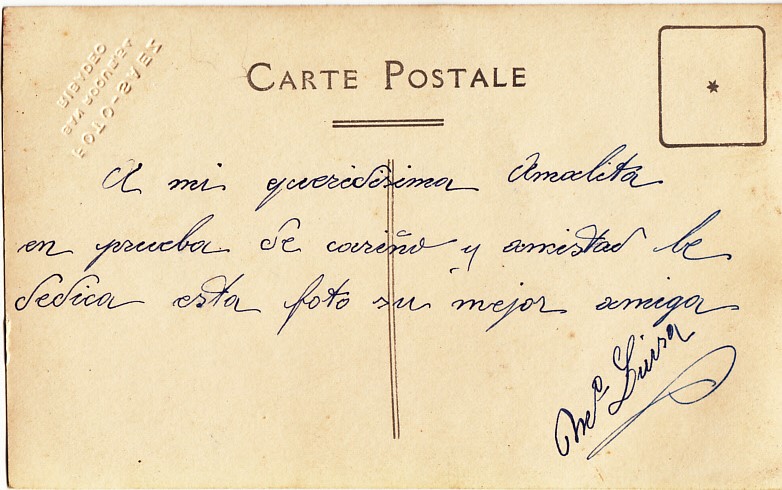 FOTO-SAEZ
SAN
ORDARIB
CARTE POSTALE
*
A mi queridisima Amalita
en prueba de cariño y amistad le
dedica esta foto su mejor amiga
Mª Luisa